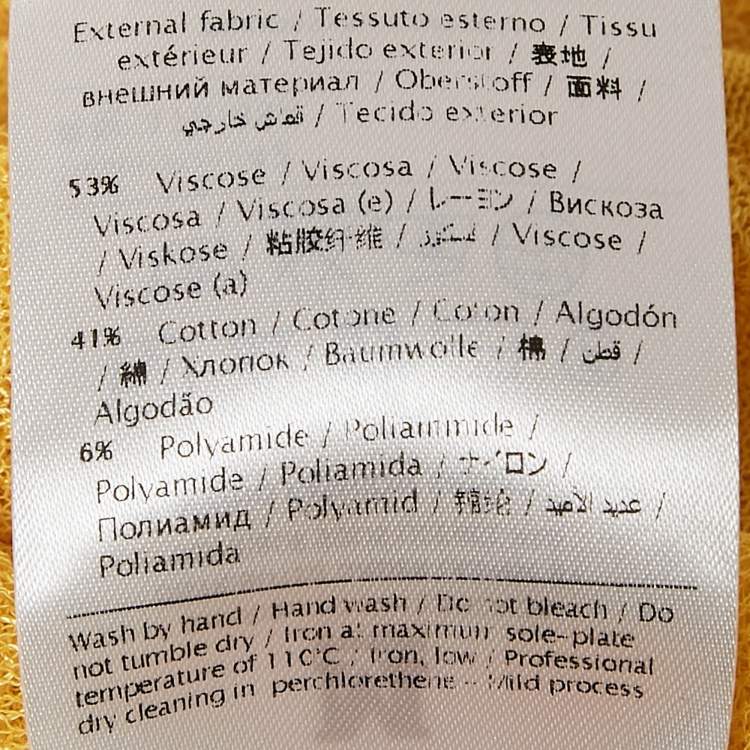 External fabric / Tessuto esterno / Tissu
extérieur / Tejido exterior / 表地 /
внешний материал / Oberstoff / 面料 /
قماش خارجي / Tecido exterior
53% Viscose / Viscosa / Viscose /
Viscosa / Viscosa (e) / レーヨン / Вискоза
/ Viskose / 粘胶纤维 / فسكوز / Viscose /
Viscose (a)
41% Cotton / Cotone / Coton / Algodón
/ 綿 / Хлопок / Baumwolle / 棉 / قطن /
Algodão
6% Polyamide / Poliammide /
Polyamide / Poliamida / ナイロン /
Полиамид / Polyamid / 锦纶 / عديد الأميد /
Poliamida
Wash by hand / Hand wash / Do not bleach / Do
not tumble dry / Iron at maximum sole-plate
temperature of 110°C / Iron, low / Professional
dry cleaning in perchlorethene - Mild process